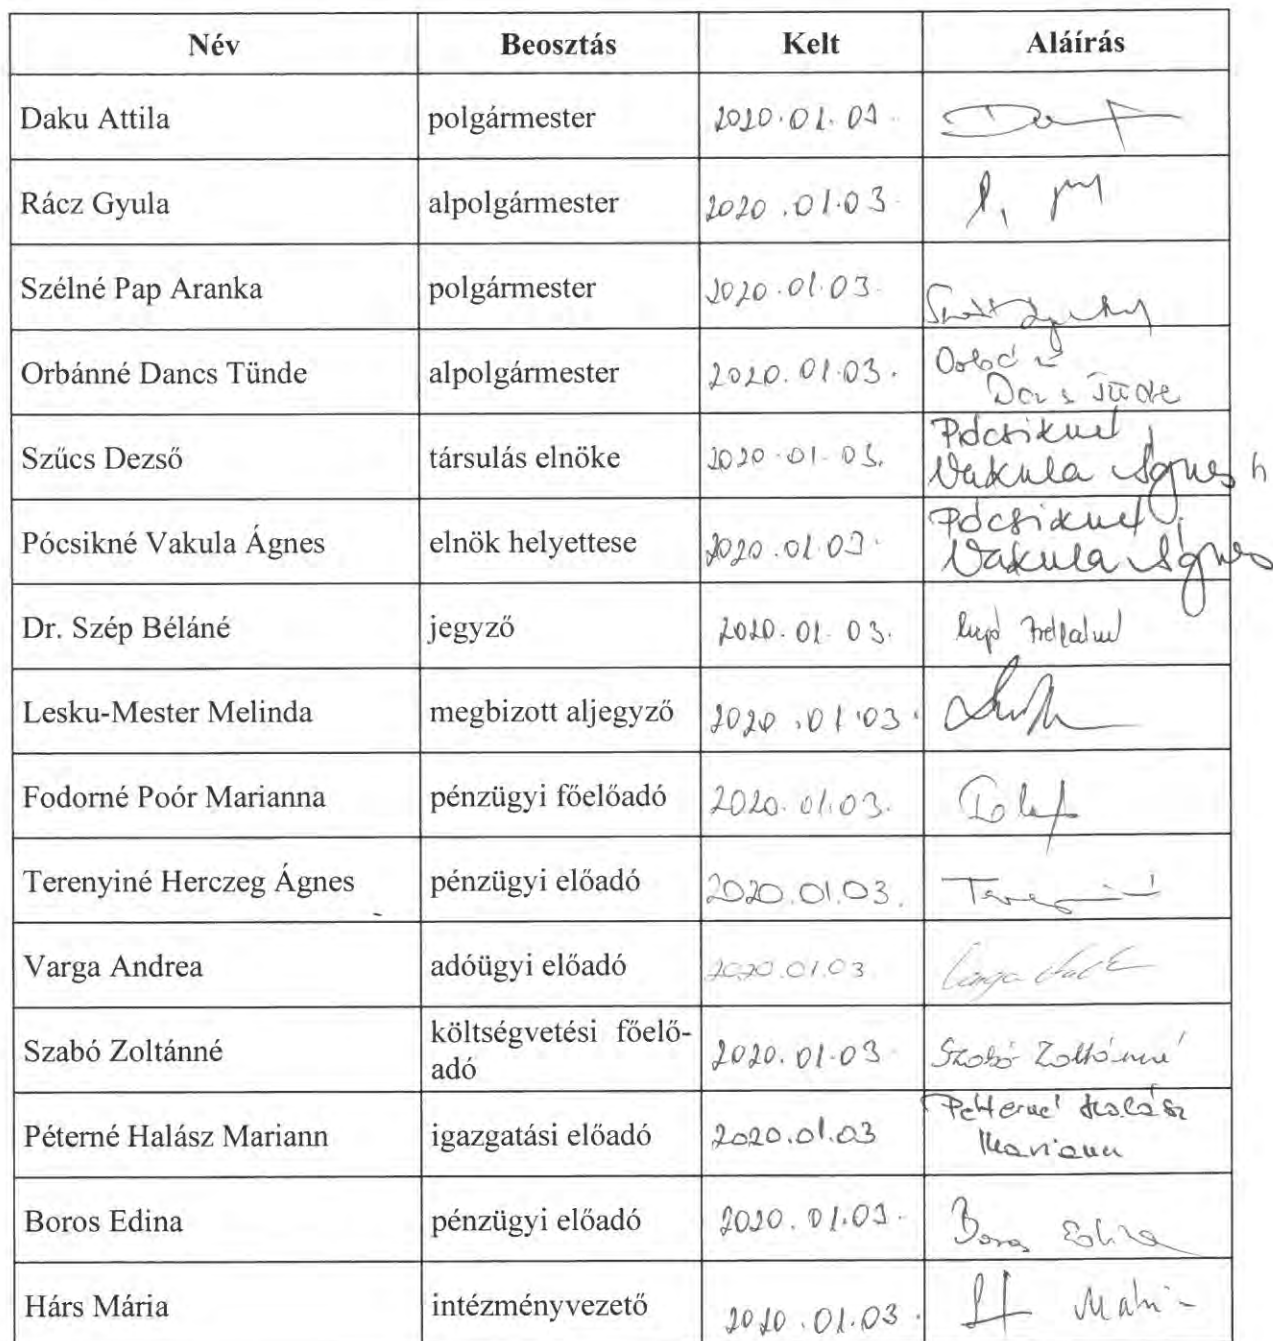 Név Beosztás Kelt Aláírás
Daku Attila polgármester 2020.01.03.
Rácz Gyula alpolgármester 2020.01.03.
Szélné Pap Aranka polgármester 2020.01.03.
Orbánné Dancs Tünde alpolgármester 2020.01.03.
Szűcs Dezső társulás elnöke 2020.01.03. Pócsikné Vakula Ágnes h
Pócsikné Vakula Ágnes elnök helyettese 2020.01.03. Pócsikné Vakula Ágnes
Dr. Szép Béláné jegyző 2020.01.03.
Lesku-Mester Melinda megbizott aljegyző 2020.01.03.
Fodorné Poór Marianna pénzügyi főelőadó 2020.01.03.
Terenyiné Herczeg Ágnes pénzügyi előadó 2020.01.03.
Varga Andrea adóügyi előadó 2020.01.03.
költségvetési főelő-
Szabó Zoltánné adó 2020.01.03. Szabó Zoltánné
Péterné Halász Mariann igazgatási előadó 2020.01.03 Péterné Halász
Mariann
Boros Edina pénzügyi előadó 2020.01.03. Boros Edina
Hárs Mária intézményvezető 2020.01.03.